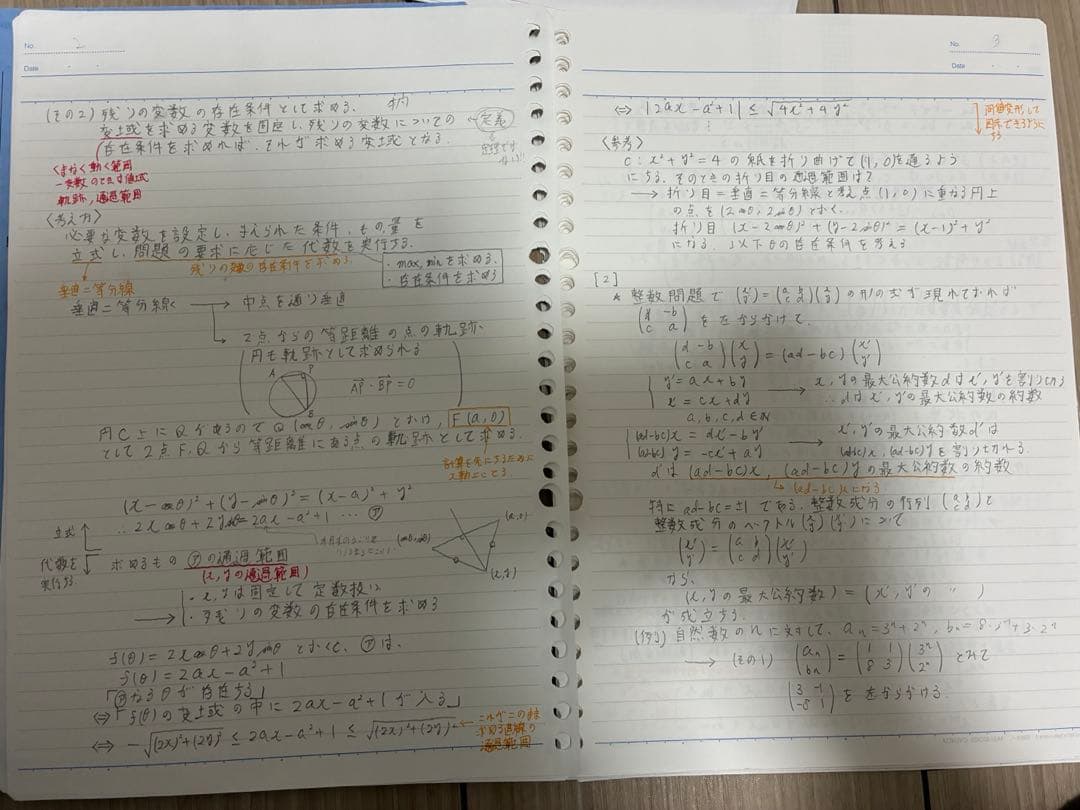 No. 2
Date
(その2) 残りの変数の存在条件として求める.
変域を求める変数を固定し、残りの変数についての
存在条件を求めれば、それが求める変域となる.
定義
くまなく動く範囲
一変数のとりうる値域
軌跡, 通過範囲
〈考え方〉
必要な変数を設定し、与えられた条件、もの量を
立式し、問題の要求に応じた代数を実行する.
残りの変数の存在条件を求める
・max, minを求める.
・存在条件を求める
垂直二等分線
垂直二等分線く → 中点を通り垂直
→ 2点からの等距離の点の軌跡.
(円も軌跡として求められる)
A P B
AP・BP = 0
円C上にQがあるのでQ(cosθ, sinθ)とおけ, F(a, 0)
として2点F, Qから等距離にある点の軌跡として求める.
(x-cosθ)² + (y-sinθ)² = (x-a)² + y²
∴ 2xcosθ + 2ysinθ = 2ax - a² + 1 … ㋐
立式
代数を
実行する
(cosθ, sinθ)
(a, 0)
(x, y)
求めるもの ㋐の通過範囲
(x, yの通過範囲)
・x, yは固定して定数扱い
→ ・残りの変数の存在条件を求める
f(θ) = 2xcosθ + 2ysinθ とおくと、㋐は、
f(θ) = 2ax - a² + 1
「㋐なるθが存在する」
⇔「f(θ)の変域の中に 2ax - a² + 1 が入る」
⇔ -√(2x)²+(2y)² ≦ 2ax - a² + 1 ≦ √(2x)²+(2y)²
← これがこのまま
求める直線の
通過範囲
No. 3
Date
⇔ |2ax - a² + 1| ≦ √4x² + 4y²
同値変形して
図示できるように
する
〈参考〉
C: x² + y² = 4 の紙を折り曲げて(1, 0)を通るよう
にする. そのときの折り目の通過範囲は?
→ 折り目 = 垂直二等分線と考え点(1, 0)に重なる円上
の点を(2cosθ, 2sinθ)とおく.
折り目 (x-2cosθ)² + (y-2sinθ)² = (x-1)² + y²
になる. 以下θの存在条件を考える
[2]
★ 整数問題で (x' y') = (a b c d)(x y) の形の式が現れておれば
(d -b -c a) を左からかけて.
(d -b -c a)(x' y') = (ad-bc)(x y)
x' = ax + by
y' = cx + dy
a, b, c, d ∈ Z
→ x, yの最大公約数dはx', y'を割りきる
∴ dは x', y'の最大公約数の約数
(ad-bc)x = dx' - by'
(ad-bc)y = -cx' + ay'
→ x', y'の最大公約数d'は
(ad-bc)x, (ad-bc)yを割りきれる.
d'は (ad-bc)x, (ad-bc)yの最大公約数の約数
特に ad-bc = ±1 である. 整数成分の行列 (a b c d) と
整数成分のベクトル (x y)(x' y') について
(x y) = (a b c d)(x' y')
から,
(x, yの最大公約数) = (x', y'の 〃 )
が成立する.
(例) 自然数のnに対して, aₙ = 3ⁿ + 2ⁿ, bₙ = 8・3ⁿ + 3・2ⁿ
→ (その1) (aₙ bₙ) = (1 1 8 3)(3ⁿ 2ⁿ) とみて
(3 -1 -8 1) を左からかける.